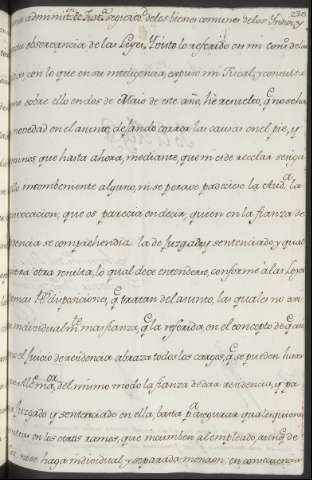 230
administ.n de Just.a segreg.on de los bienes comunes de los Indios, y
observancia de las Leyes; Y visto lo referido en mi Con.o de las
Indias, con lo que en su inteligencia, expuso mi Fiscal, y consulta
sobre ello en dos de Maio de este año, hè resuelto, q.e no se haga
novedad en el asunto, dejando correr las causas en el pie, y
terminos que hasta ahora, mediante, que ni de reglar se siga
inconveniente alguno, ni se percive padeciese la Aud.a la
equivocacion, que os parecia en decir, que en en la fianza de
residencia se comprehendia la de Juzgado y sentenciado, y qual
quiera otra resulta, lo qual deve entenderse, conforme à las Leyes
demas R.s disposiciones, q.e tratan del asunto, las quales no
individual m.te mas fianza, q.e la referida, en el concepto de q.e
como el Juicio de residencia abraza todos los cargos, q.e se pueden hacer
del mismo modo la fianza de dar residencia, y pa
Juzgado y sentenciado en ella, basta p.a asegurar qualesquiera
resultas en los otros ramos, que incumben al empleado
no se haga individual y separada mencion: en consequencia